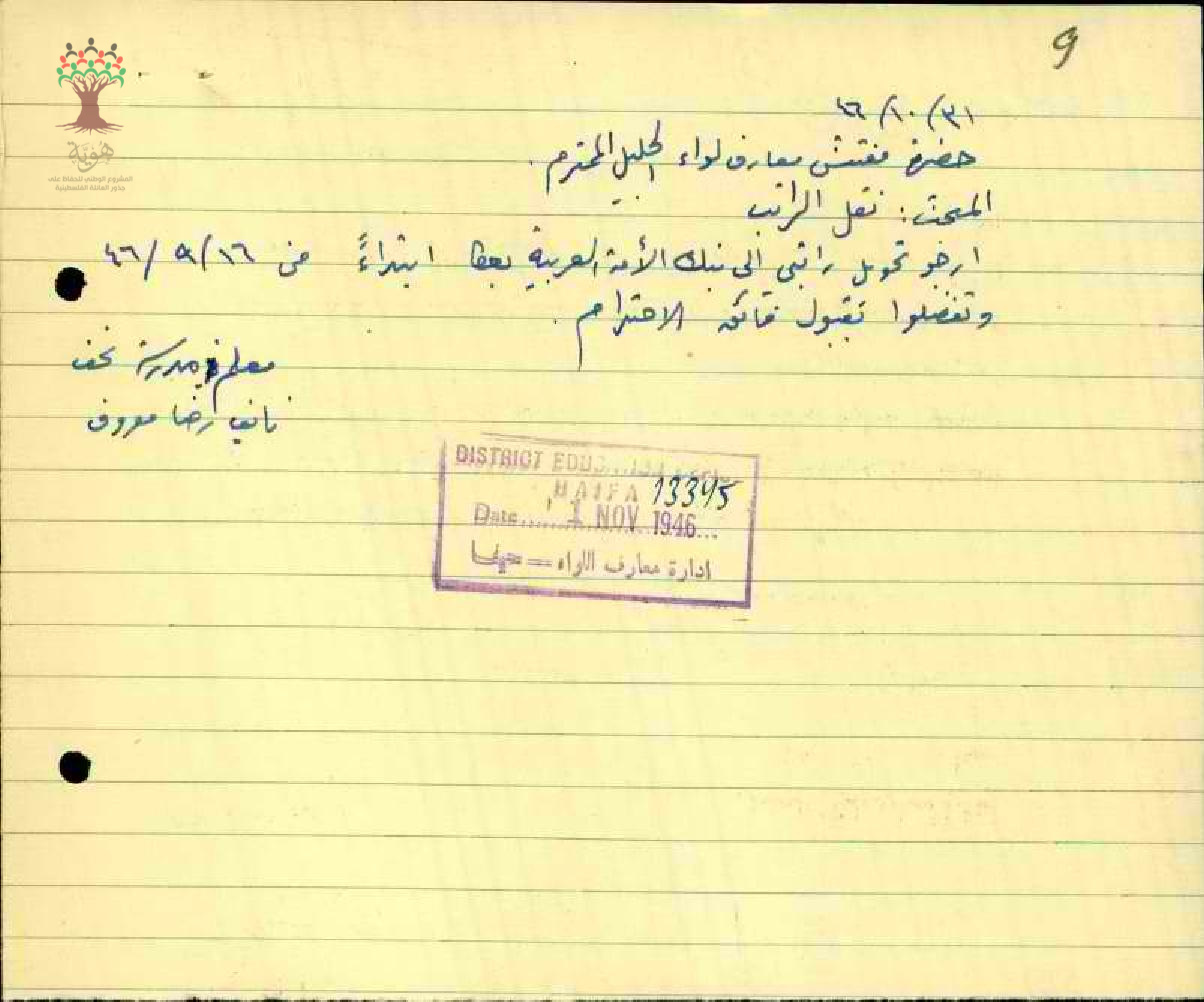 9
هوية
المشروع الوطني للحفاظ على
جذور العائلة الفلسطينية
٣١/١٠/٤٦
حضرة مفتش معارف لواء الجليل المحترم.
المبحث: نقل الراتب
ارجو تحويل راتبي الى بنك الأمة العربية بعكا ابتداءً من ١٦/٩/٤٦
وتفضلوا بقبول فائق الاحترام.
معلم مدرسة نحف
نايف رضا معروف
DISTRICT
HAIFA 13395
Date 1 NOV 1946
ادارة معارف اللواء = حيفا